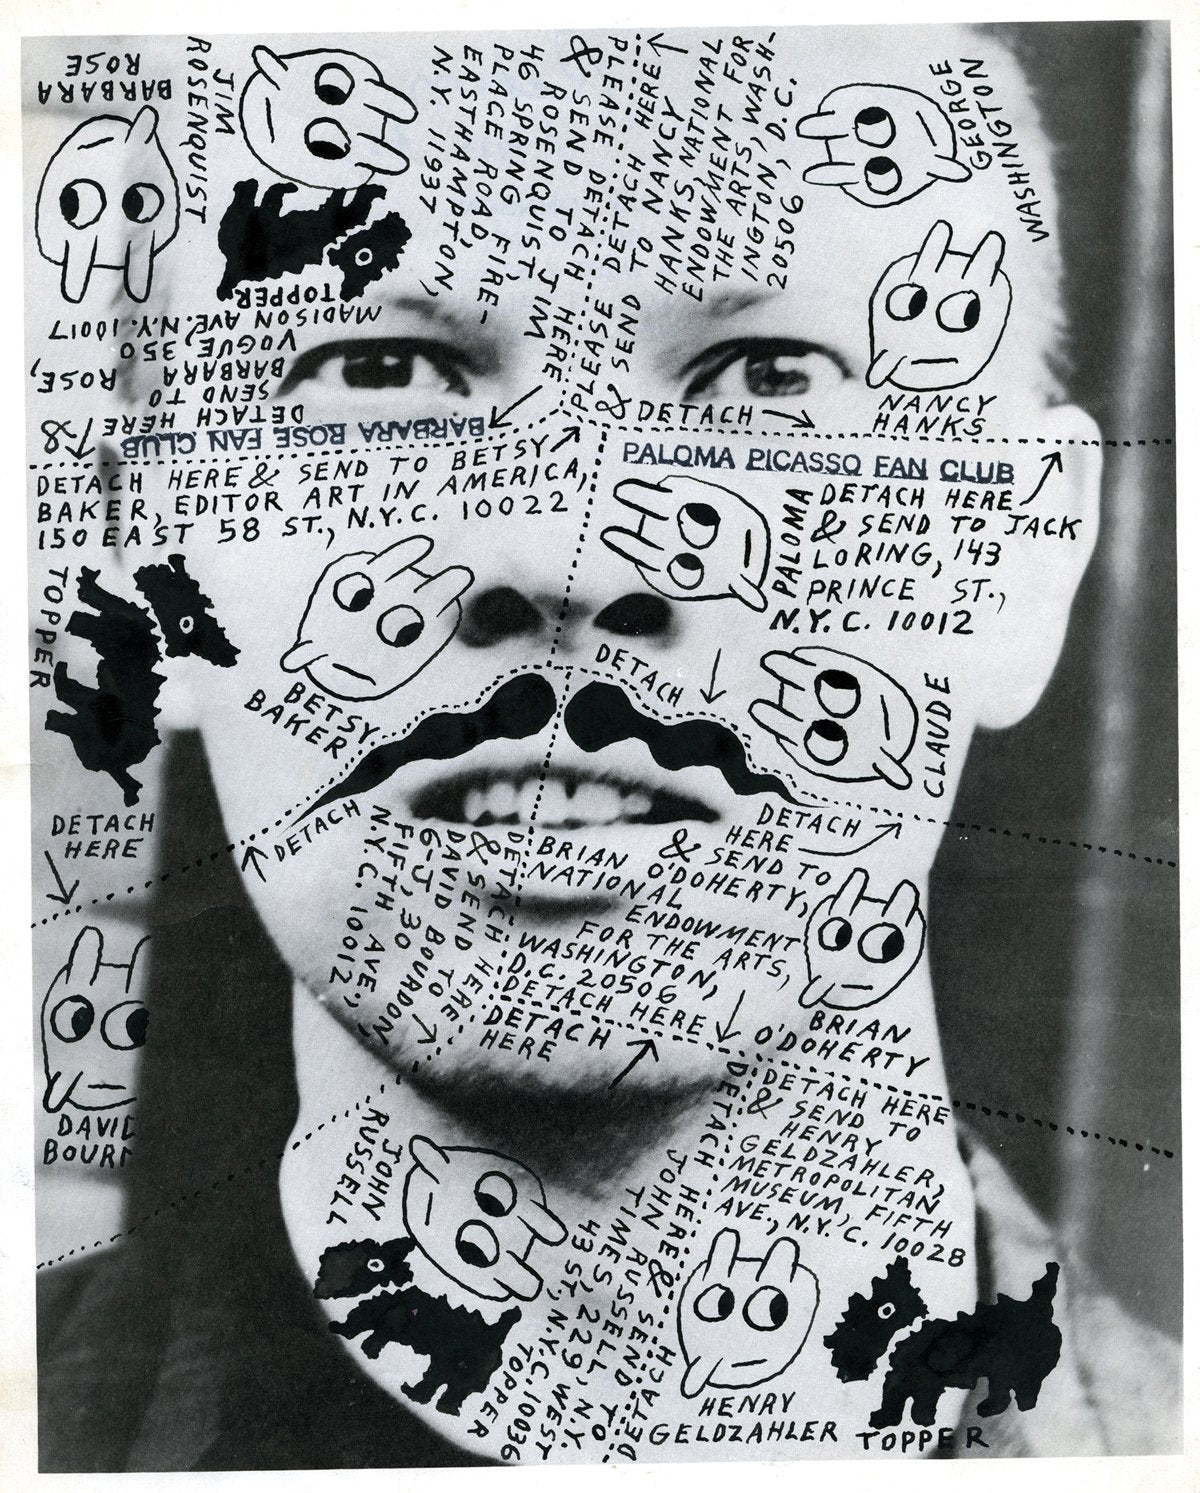 BARBARA
ROSE
JIM
ROSENQUIST
PLEASE DETACH HERE
& SEND TO JIM
ROSENQUIST
46 SPRING FIRE-
PLACE ROAD,
EASTHAMPTON,
N.Y. 11937
PLEASE DETACH HERE
& SEND TO NANCY
HANKS, NATIONAL
ENDOWMENT FOR
THE ARTS, WASH-
INGTON, D.C.
20506
GEORGE
WASHINGTON
NANCY
HANKS
TOPPER
DETACH HERE &
SEND TO
BARBARA ROSE,
VOGUE, 350
MADISON AVE. N.Y. 10017
BARBARA ROSE FAN CLUB
DETACH
DETACH HERE & SEND TO BETSY
BAKER, EDITOR ART IN AMERICA,
150 EAST 58 ST., N.Y.C. 10022
PALOMA PICASSO FAN CLUB
DETACH HERE
& SEND TO JACK
LORING, 143
PRINCE ST.,
N.Y.C. 10012
PALOMA
TOPPER
BETSY
BAKER
DETACH
CLAUDE
DETACH
HERE
DETACH
DETACH
HERE
& SEND TO
BRIAN O'DOHERTY,
NATIONAL
ENDOWMENT
FOR THE ARTS,
WASHINGTON,
D.C. 20506
DETACH HERE
DETACH HERE
& SEND TO
DAVID BOURDON
6-J, 30
FIFTH AVE.,
N.Y.C. 10012
DETACH
HERE
BRIAN
O'DOHERTY
DAVID
BOUR
JOHN
RUSSELL
DETACH HERE
& SEND TO
HENRY
GELDZAHLER,
METROPOLITAN
MUSEUM, FIFTH
AVE., N.Y.C. 10028
DETACH HERE & DETACH
JOHN RUSSELL SEND TO
TIMES, 229 WEST
43 ST., N.Y.C. 10036
TOPPER
HENRY
GELDZAHLER
TOPPER